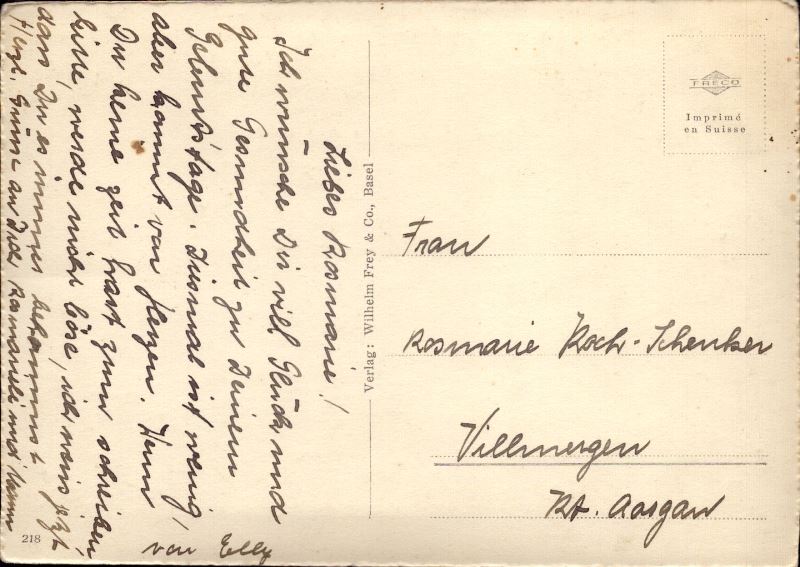 Liebes Rosmarie!
Ich wünsche Dir viel Glück und
gute Gesundheit zu Deinem
Geburtstage. Diesmal ist wenig,
aber kommt von Herzen. Wenn
Du keine zeit hast zum schreiben
bitte, werde nicht böse, ich muss jetzt
dass Du es immer bekommst
Herzl. Grüsse an Dich und Mann
von Elly
218
Verlag: Wilhelm Frey & Co., Basel
FRECO
Imprimé
en Suisse
Frau
Rosmarie Koch-Schenker
Villmergen
Kt. Aargau